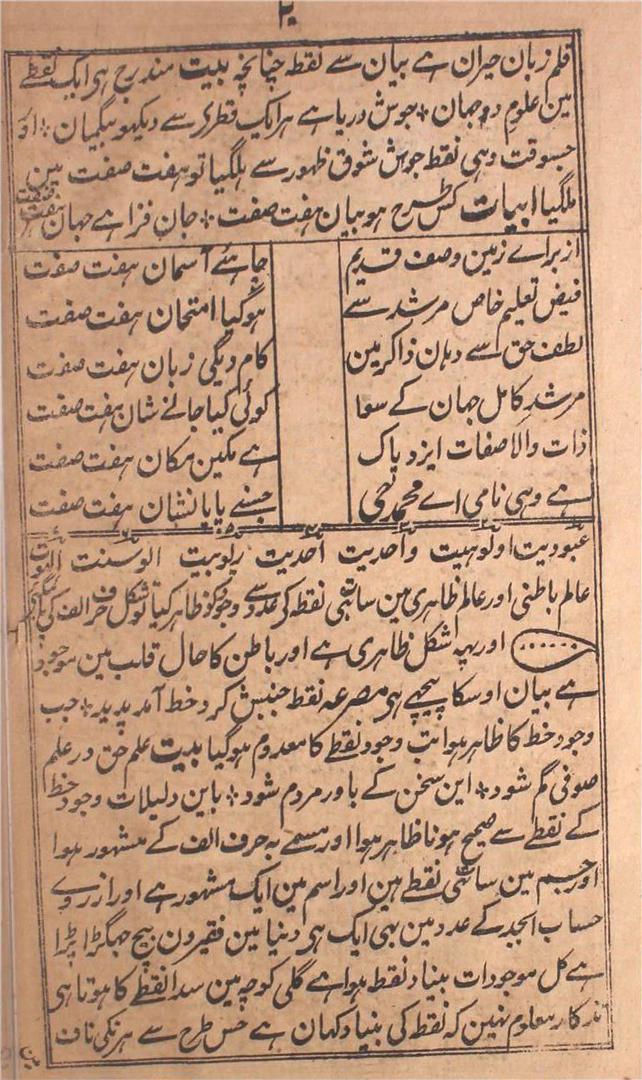 ۲۰
قلم زبان حیران ہے بیان سے نقطہ چنانچہ بیت مندرج ہی ایک نقطے
مین علوم دوجہان + جوش دریا ہے ہر ایک قطری سے دیکھو بیگمیان + اور
جسوقت وہی نقطہ جوش شوق ظہور سے ہلگیا تو ہفت صفت مین
ملگیا ابیات کس طرح ہو بیان ہفت صفت + جان فزا ہے جہان ہفت صفت
از براے زمین وصف قدیم
جاہئے آسمان ہفت صفت
فیض تعلیم خاص مرشد سے
ہو گیا امتحان ہفت صفت
لطف حق سے دہان ذاکر مین
کام دیگی زبان ہفت صفت
مرشد کامل جہان کے سوا
کوئی کیا جانے شان ہفت صفت
ذات والا صفات ایزد پاک
ہے مکین مکان ہفت صفت
ہے وہی نامی اے محمد
جسنے پایا نشان ہفت صفت
عبودیت اولوہیت واحدیت احدیت ربوبیت
عالم باطنی اور عالم ظاہری مین ساتہی نقطہ کی عدد سے وجود کو ظاہر کیا تو شکل حرف الف کی
...... اور یہہ شکل ظاہری ہے اور باطن کا حال قلب مین موجود
ہے بیان اوسکا پیچھے ہی مصرعہ نقطہ جنبش کرد خط آمد پدید + جب
وجود خط کا ظاہر ہوا تب وجود نقطے کا معدوم ہو گیا بیت علم حق در علم
صوفی گم شود + این سخن کے باور مردم شود + باین دلیلات وجود خط
کے نقطے سے صحیح ہونا ظاہر ہوا اور مسمے بہ حرف الف کے مشہور ہوا
اور جسم مین ساتہی نقطے ہین اور اسم مین ایک مشہور ہے اور از روے
حساب ابجد کے عدد مین بہی ایک ہی دنیا مین فقیرون بیچ جہگڑا پڑا
ہے کل موجودات بنیاد نقطہ ہوا ہے گلی کوچہ مین سدا نقطے کا ہوتا ہی
معلوم نہین کہ نقطہ کی بنیاد کہان ہے جس طرح سے ناف